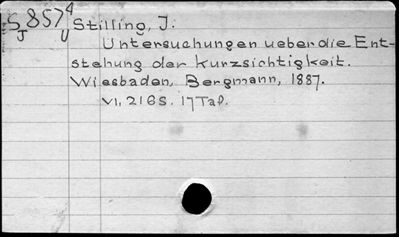 S857⁴
J U
Stilling, J.
Untersuchungen ueber die Ent-
stehung der Kurzsichtigkeit.
Wiesbaden, Bergmann, 1887.
VI, 216 S. 17 Taf.